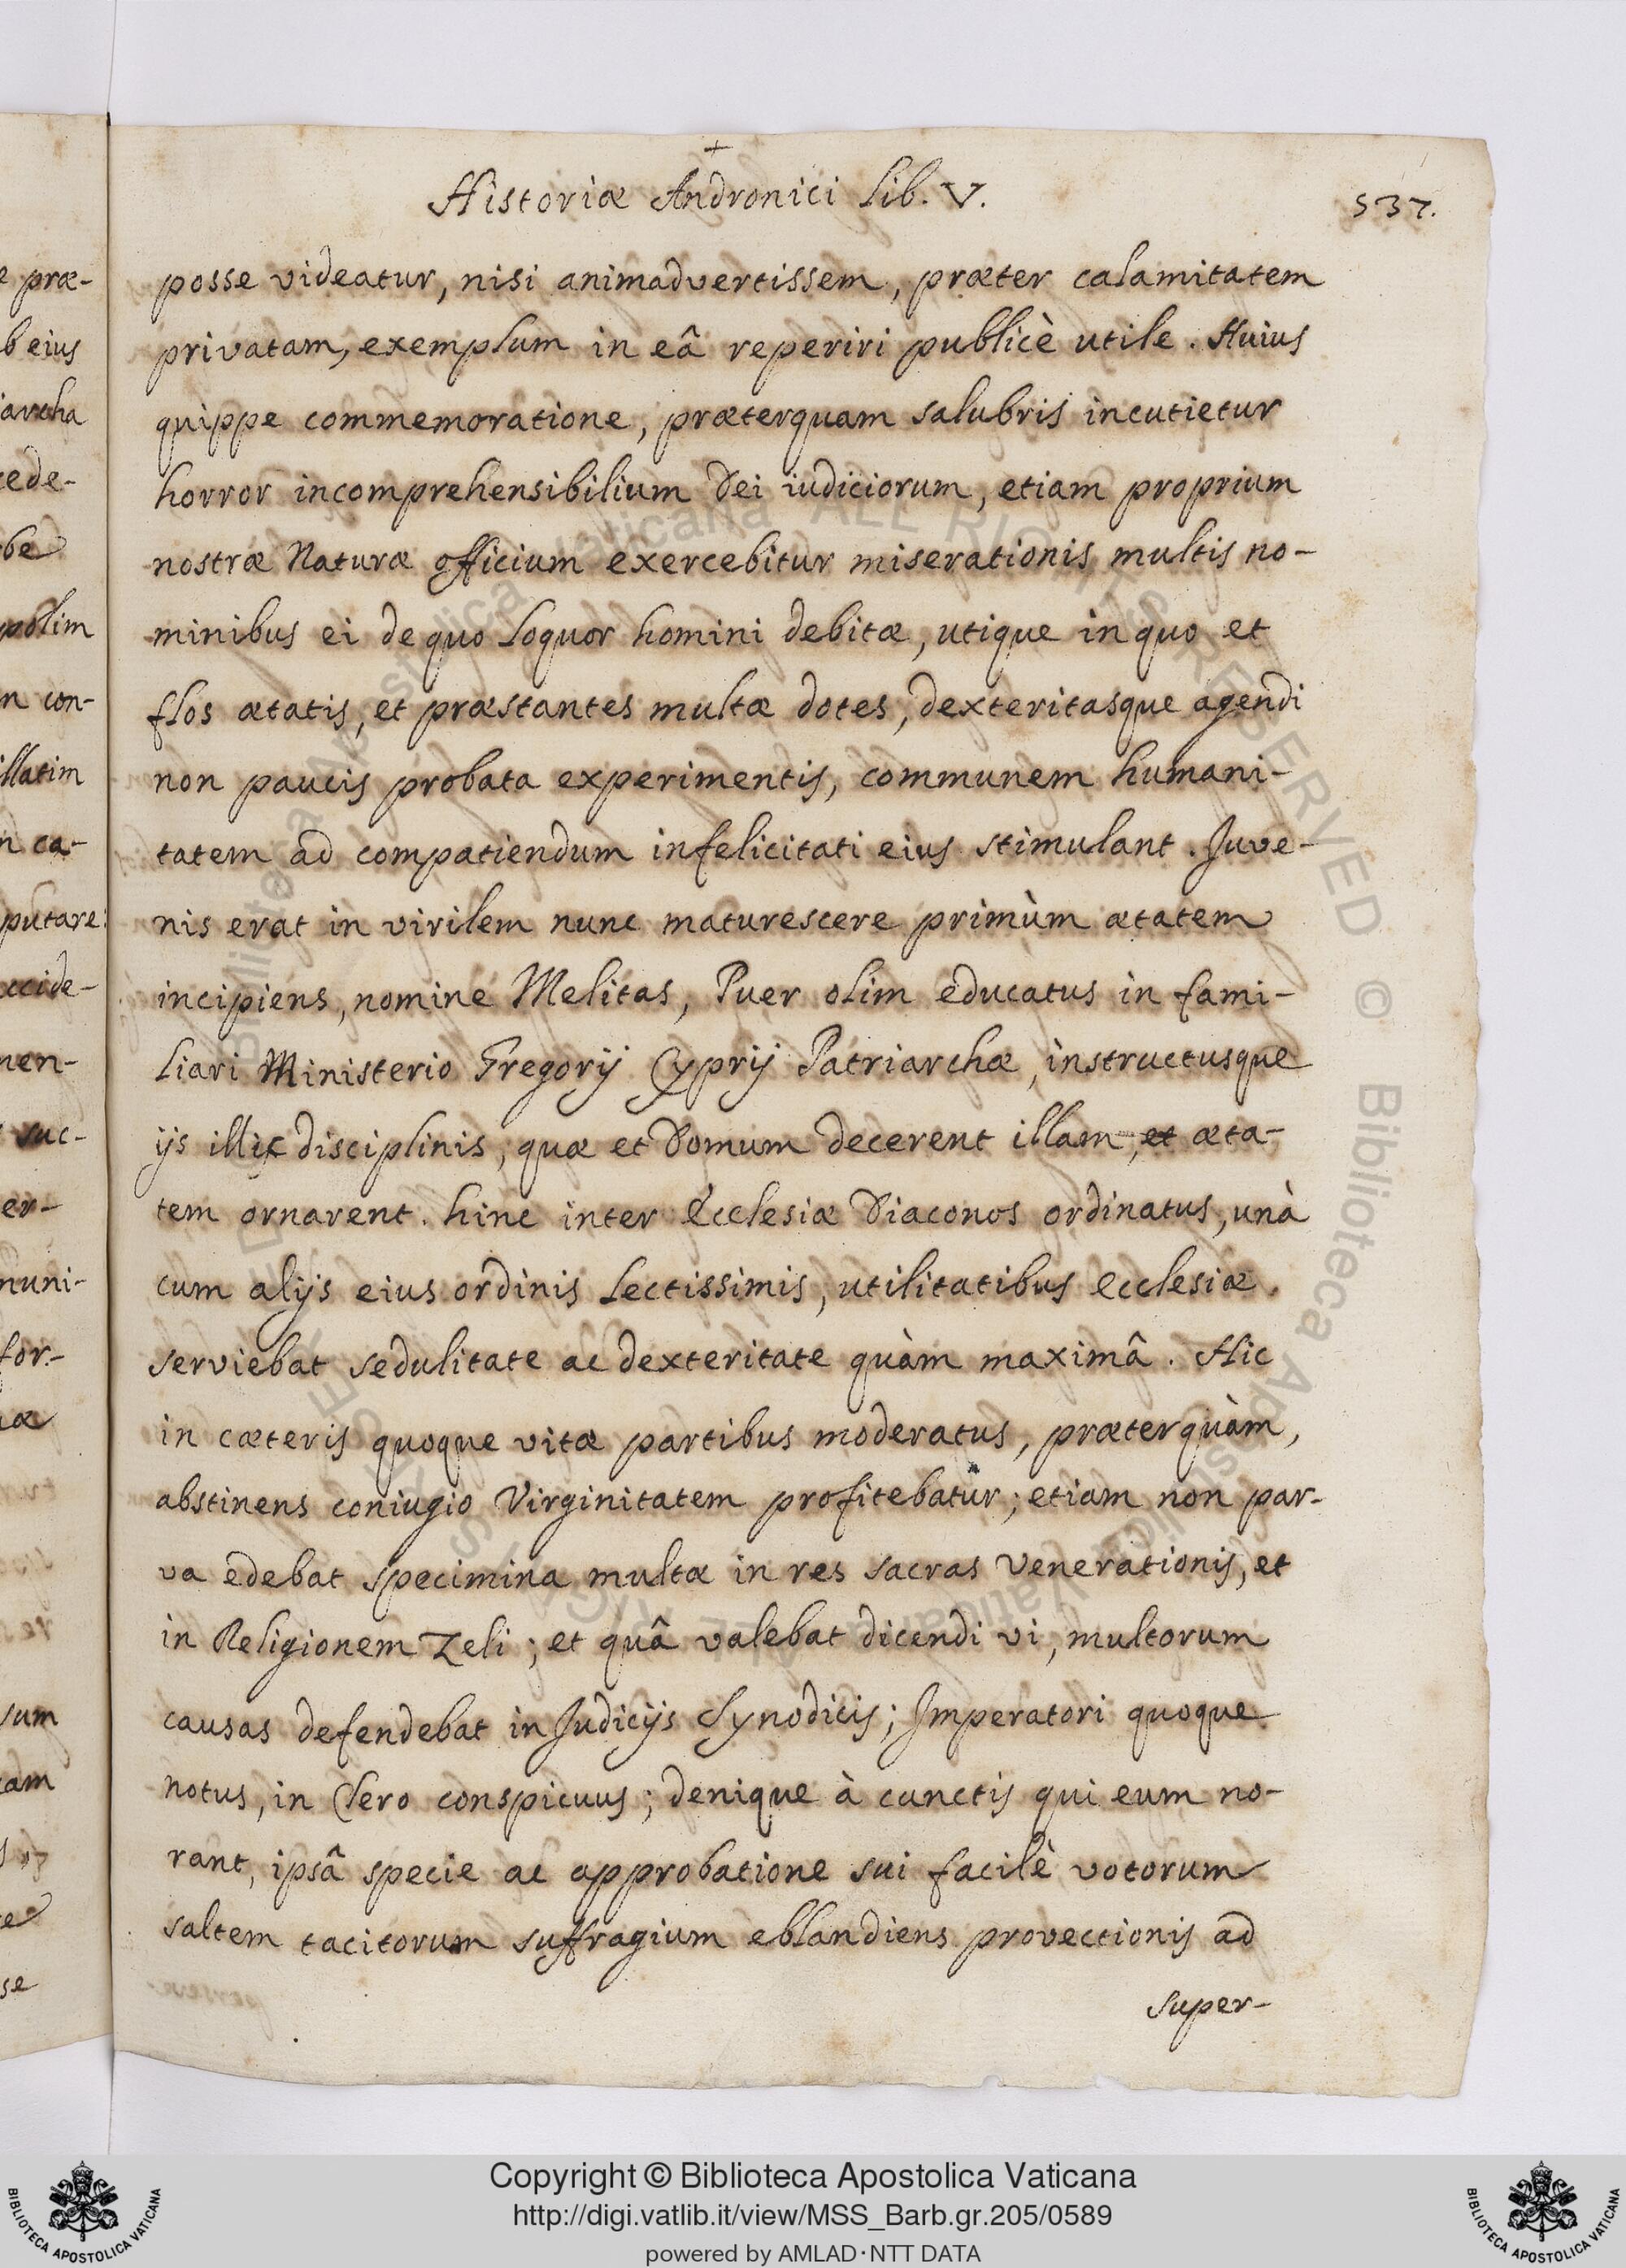 +
Historiæ Andronici Lib. V.
537.
posse videatur, nisi animadvertissem, præter calamitatem
privatam, exemplum in eâ reperiri publicè utile. Huius
quippe commemoratione, præterquam salubris incutietur
horror incomprehensibilium Dei iudiciorum, etiam proprium
nostræ Naturæ officium exercebitur miserationis multis no-
minibus ei de quo loquor homini debitæ, utique in quo et
flos ætatis, et præstantes multæ dotes, dexteritasque agendi
non paucis probata experimentis, communem humani-
tatem ad compatiendum infelicitati eius stimulant. Juve-
nis erat in virilem nunc maturescere primùm ætatem
incipiens, nomine Melitas, Puer olim educatus in fami-
liari Ministerio Gregorij Cyprij Patriarchæ, instructusque
ijs illic disciplinis, quæ et Domum decerent illam, et æta-
tem ornarent. hinc inter Ecclesiæ Diaconos ordinatus, unà
cum alijs eius ordinis Lectissimis, utilitatibus Ecclesiæ
serviebat sedulitate ac dexteritate quàm maximâ. Hic
in cæteris quoque vitæ partibus moderatus, præterquàm,
abstinens coniugio Virginitatem profitebatur; etiam non par-
va edebat specimina multæ in res sacras Venerationis, et
in Religionem Zeli; et quâ valebat dicendi vi, multorum
causas defendebat in Judicijs Synodicis; Imperatori quoque
notus, in Clero conspicuus; denique à cunctis qui eum no-
rant, ipsâ specie ac approbatione sui facilè votorum
saltem tacitorum suffragium eblandiens provectionis ad
super-
e præ-
b eius
iarcha
cede-
be
polim
n con-
illatim
n ca-
putare:
ccide-
men-
suc-
er-
muni-
for-
uæ
sum
tam
te
se
Copyright © Biblioteca Apostolica Vaticana
http://digi.vatlib.it/view/MSS_Barb.gr.205/0589
powered by AMLAD·NTT DATA
BIBLIOTECA APOSTOLICA VATICANA
BIBLIOTECA APOSTOLICA VATICANA